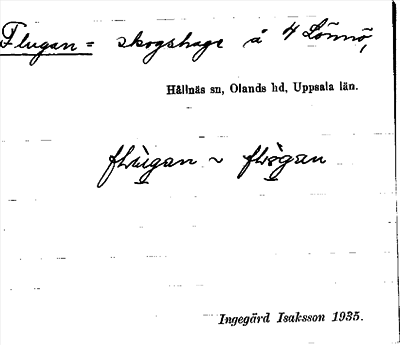 Flugan = skogshage å 4 Lönnö,
Hållnäs sn, Olands hd, Uppsala län.
flùgan ~ flògan
Ingegärd Isaksson 1935.